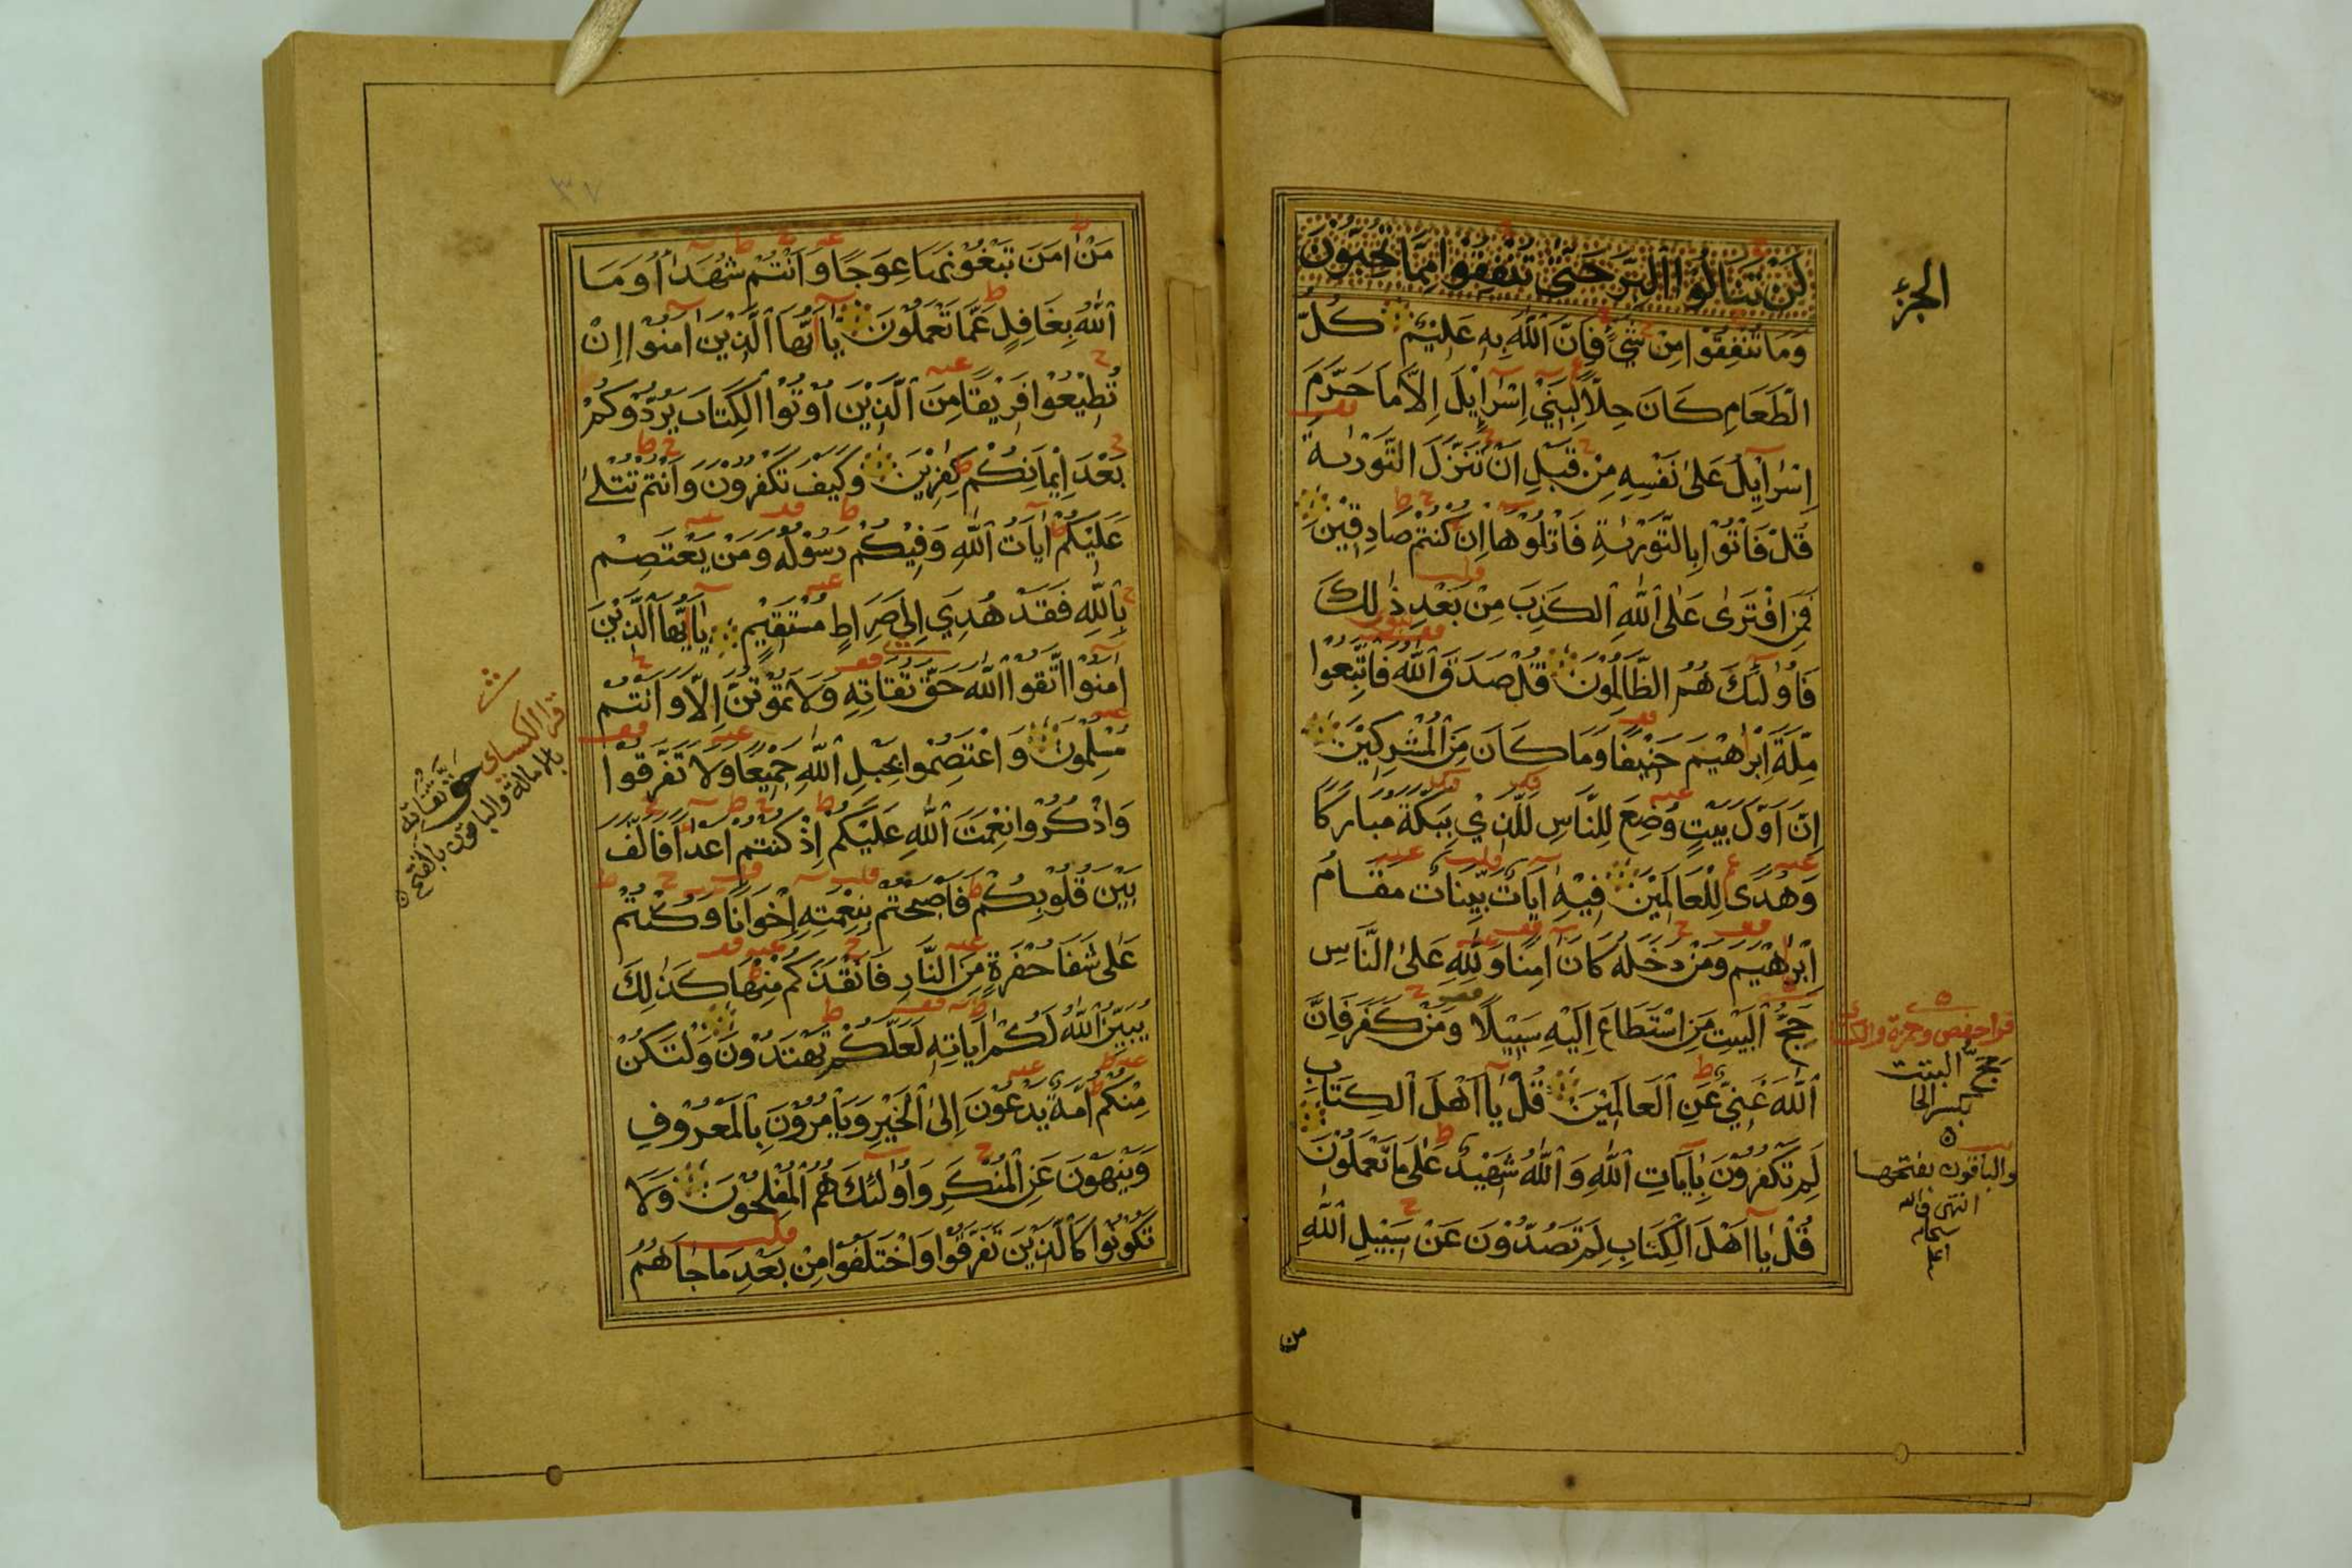 الجزء
لَنْ تَنَالُوا الْبِرَّ حَتّٰى تُنْفِقُوا مِمَّا تُحِبُّونَ
وَمَا تُنْفِقُوْا مِنْ شَيْءٍ فَاِنَّ اللّٰهَ بِهِ عَلِيْمٌ كُلُّ
الطَّعَامِ كَانَ حِلّاً لِبَنِيْ اِسْرَايِلَ اِلَّا مَا حَرَّمَ
اِسْرَايِلُ عَلىٰ نَفْسِهِ مِنْ قَبْلِ اَنْ تُنَزَّلَ التَّوْرٰىةُ
قُلْ فَاْتُوْا بِالتَّوْرٰىةِ فَاتْلُوْهَا اِنْ كُنْتُمْ صَادِقِيْنَ
فَمَنِ افْتَرٰى عَلَى اللّٰهِ الْكَذِبَ مِنْ بَعْدِ ذٰلِكَ
فَاُولٰئِكَ هُمُ الظَّالِمُوْنَ قُلْ صَدَقَ اللّٰهُ فَاتَّبِعُوْا
مِلَّةَ اِبْرٰهِيْمَ حَنِيْفًا وَمَا كَانَ مِنَ الْمُشْرِكِيْنَ
اِنَّ اَوَّلَ بَيْتٍ وُضِعَ لِلنَّاسِ لَلَّذِيْ بِبَكَّةَ مُبَارَكًا
وَهُدًى لِلْعَالَمِيْنَ فِيْهِ اٰيَاتٌ بَيِّنَاتٌ مَقَامُ
اِبْرٰهِيْمَ وَمَنْ دَخَلَهُ كَانَ اٰمِنًا وَلِلّٰهِ عَلَى النَّاسِ
حِجُّ الْبَيْتِ مَنِ اسْتَطَاعَ اِلَيْهِ سَبِيْلًا وَمَنْ كَفَرَ فَاِنَّ
اللّٰهَ غَنِيٌّ عَنِ الْعَالَمِيْنَ قُلْ يٰا اَهْلَ الْكِتَابِ
لِمَ تَكْفُرُوْنَ بِاٰيَاتِ اللّٰهِ وَاللّٰهُ شَهِيْدٌ عَلٰى مَا تَعْمَلُوْنَ
قُلْ يٰا اَهْلَ الْكِتَابِ لِمَ تَصُدُّوْنَ عَنْ سَبِيْلِ اللّٰهِ
قرا حفص وحمزة والكسائى
حِجُّ البيت
بكسر الحا
والباقون بفتحها
من
٣٧
مَنْ اٰمَنَ تَبْغُوْنَهَا عِوَجًا وَاَنْتُمْ شُهَدَاُ وَمَا
اللّٰهُ بِغَافِلٍ عَمَّا تَعْمَلُوْنَ يٰا اَيُّهَا الَّذِيْنَ اٰمَنُوْا اِنْ
تُطِيْعُوْا فَرِيْقًا مِنَ الَّذِيْنَ اُوْتُوْا الْكِتَابَ يَرُدُّوْكُمْ
بَعْدَ اِيْمَانِكُمْ كٰفِرِيْنَ وَكَيْفَ تَكْفُرُوْنَ وَاَنْتُمْ تُتْلٰى
عَلَيْكُمْ اٰيَاتُ اللّٰهِ وَفِيْكُمْ رَسُوْلُهُ وَمَنْ يَعْتَصِمْ
بِاللّٰهِ فَقَدْ هُدِيَ اِلٰى صِرَاطٍ مُسْتَقِيْمٍ يٰا اَيُّهَا الَّذِيْنَ
اٰمَنُوْا اتَّقُوا اللّٰهَ حَقَّ تُقَاتِهِ وَلَا تَمُوْتُنَّ اِلَّا وَاَنْتُمْ
مُسْلِمُوْنَ وَاعْتَصِمُوْا بِحَبْلِ اللّٰهِ جَمِيْعًا وَلَا تَفَرَّقُوْا
وَاذْكُرُوْا نِعْمَتَ اللّٰهِ عَلَيْكُمْ اِذْ كُنْتُمْ اَعْدَاً فَاَلَّفَ
بَيْنَ قُلُوْبِكُمْ فَاَصْبَحْتُمْ بِنِعْمَتِهِ اِخْوَانًا وَكُنْتُمْ
عَلٰى شَفَا حُفْرَةٍ مِنَ النَّارِ فَاَنْقَذَكُمْ مِنْهَا كَذٰلِكَ
يُبَيِّنُ اللّٰهُ لَكُمْ اٰيَاتِهِ لَعَلَّكُمْ تَهْتَدُوْنَ وَلْتَكُنْ
مِنْكُمْ اُمَّةٌ يَدْعُوْنَ اِلَى الْخَيْرِ وَيَاْمُرُوْنَ بِالْمَعْرُوْفِ
وَيَنْهَوْنَ عَنِ الْمُنْكَرِ وَاُولٰئِكَ هُمُ الْمُفْلِحُوْنَ وَلَا
تَكُوْنُوْا كَالَّذِيْنَ تَفَرَّقُوْا وَاخْتَلَفُوْا مِنْ بَعْدِ مَا جَاَهُمُ
قرا الكساى حَقَّ تُقَاتِهِ
بالامالة والباقون بالفتح